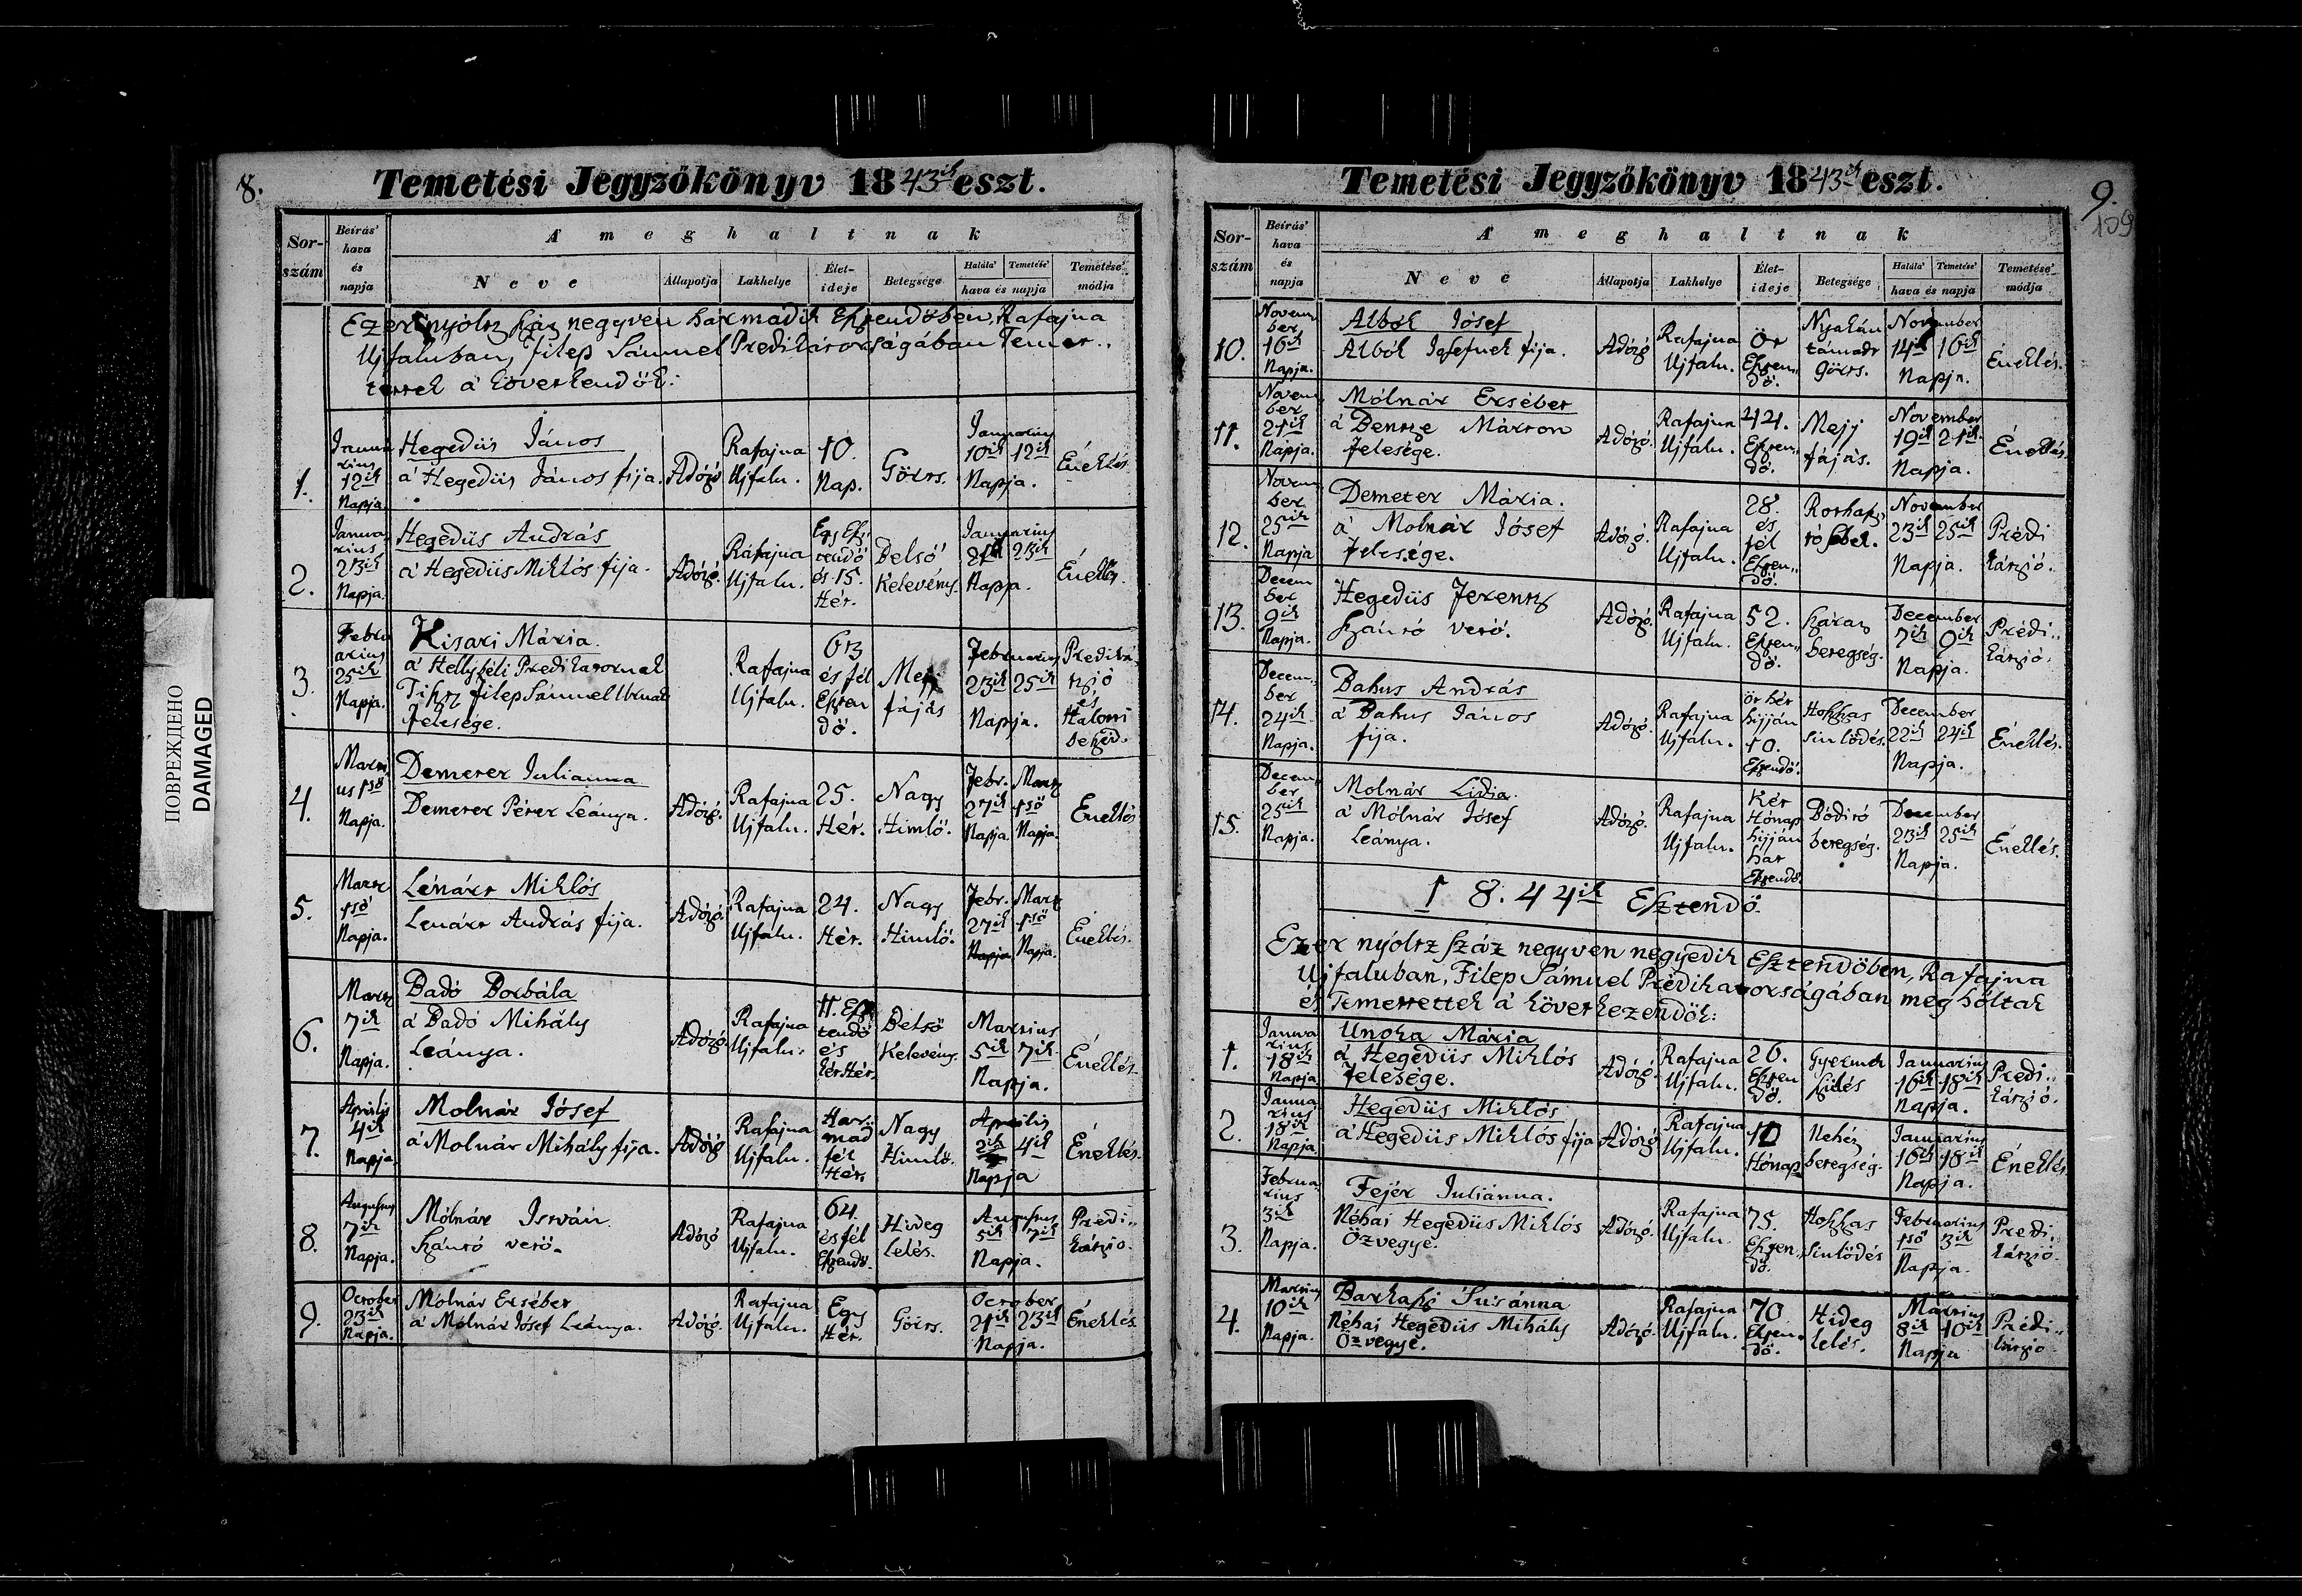 8.
Temetési Jegyzőkönyv 1843ik eszt.
Sor-szám
Beírás' hava és napja
A' meghaltnak
Neve
Állapotja
Lakhelye
Élet-ideje
Betegsége
Halála' Temetése'
hava és napja
Temetése' módja
Ezer nyólcz száz negyven harmadik Esztendőben, Rafajna
Ujfaluban, Filep Sámuel Predikátorságában Temet..
tettek á következendők:
1. Januarius 12ik Napja. Hegedüs János á Hegedüs János fija. Adózó Rafajna Ujfalu. 10. Nap. Görts. Januarius 10ik 12ik Napja. Éneklés.
2. Januarius 23ik Napja. Hegedüs András á Hegedüs Miklós fija. Adózó. Rafajna Ujfalu. Egy Esztendő és 15. Hét. Belső Kelevény. Januarius 21ik 23ik Napja. Éneklés.
3. Februarius 25ik Napja. Kisari Mária. á Hellybéli Predikátornak Filep Sámuel Urnak Felesége. Rafajna Ujfalu. 63 és fél Eszten dő. Mejj fájás Februarius 23ik 25ik Napja. Predikátzió és Halotti
4. Martius 1ső Napja. Demeter Julianna Demeter Péter Leánya. Adózó. Rafajna Ujfalu. 25. Hét. Nagy Himlő. Febr. 27ik Napja. Martz 1ső Napja. Éneklés
5. Martz 1ső Napja. Lénárt Miklós Lenárt András fija. Adózó Rafajna Ujfalu. 24. Hét. Nagy Himlő. Febr. 27ik Napja Martz 1ső Napja. Éneklés.
6. Martz 7ik Napja. Badó Borbála á Badó Mihály Leánya. Adózó Rafajna Ujfalu. 11. Esztendő és két Hét. Belső Kelevény. Martius 5ik 7ik Napja. Éneklés.
7. Aprilis 4ik Napja Molnár Jósef á Molnár Mihály fija. Adózó Rafajna Ujfalu. Harmad fél Hét. Nagy Himlő. Aprilis 2ik 4ik Napja Éneklés.
8. Augustus 7ik Napja. Mólnár István. Szántó vető. Adózó Rafajna Ujfalu. 64. és fél Esztendő. Hideg Lelés. Augustus 5ik 7ik Napja. Prédi,, kátzió.
9. October 23ik Napja. Mólnár Ersébet á Mólnár Jósef Leánya. Adózó. Rafajna Ujfalu. Egy Hét. Görts. October 21ik 23ik Napja. Éneklés
Temetési Jegyzőkönyv 1843ik eszt.
9.
139
Sor-szám
Beírás' hava és napja
A' meghaltnak
Neve
Állapotja
Lakhelye
Élet-ideje
Betegsége
Halála' Temetése'
hava és napja
Temetése' módja
10. Novem ber 16ik Napja. Albók Jósef Albók Jósefnek fija. Adózó Rafajna Ujfalu. Öt Eszten,, dő. Nyakán támadt Görts. November 14ik 16ik Napja. Éneklés.
11. Novem ber 21ik Napja. Mólnár Ersébet á Bentze Márton Felesége. Adózó. Rafajna Ujfalu. 42. Eszten,, dő. Mejj fájás. November 19ik 21ik Napja. Éneklés.
12. Novem ber 25ik Napja Demeter Mária. á Molnár Jósef Felesége. Adózó. Rafajna Ujfalu. 28. és fél Eszten,, dő. Rothasz,, tó Seber. November 23ik 25ik Napja. Prédi kátzió.
13. Decem ber 9ik Napja. Hegedüs Ferentz Szántó vető. Adózó. Rafajna Ujfalu. 52. Eszten,, dő. Száraz betegség. December 7ik 9ik Napja. Prédi,, kátzió.
14. Decem,, ber 24ik Napja. Bakus András á Bakus János fija. Adózó. Rafajna Ujfalu. öt hét híjján 10. Esztendő. Hosszas Sinlődés. December 22ik 24ik Napja. Éneklés.
15. Decem,, ber 25ik Napja. Molnár Lidia. á Mólnár Jósef Leánya. Adózó. Rafajna Ujfalu. Két Hónap híjján hat Esztendő. Bódító betegség. December 23ik 25ik Napja. Éneklés.
1 8. 4 4ik Esztendő.
Ezer nyólcz száz negyven negyedik Esztendőben, Rafajna
Ujfaluban, Filep Sámuel Prédikátorságában meg hóltak
és Temettettek á következendők:
1. Janua rius 18ik Napja Unoka Mária á Hegedüs Miklós Felesége. Adózó. Rafajna Ujfalu. 26. Eszten dő. Gyermek szülés Januarius 16ik 18ik Napja. Prédi,, kátzió.
2. Janua rius 18ik Napja Hegedüs Miklós á Hegedüs Miklós fija Adózó Rafajna Ujfalu. 10 Hónap Nehéz betegség. Januarius 16ik 18ik Napja. Éneklés
3. Februa rius 3ik Napja. Fejér Juliánna. Néhai Hegedüs Miklós Özvegye. Adózó. Rafajna Ujfalu. 75. Eszten,, dő. Hosszas Sinlődés Februarius 1ső 3ik Napja. Prédi,, kátzió.
4. Martius 10ik Napja. Barkaszi Susánna Néhai Hegedüs Mihály Özvegye. Adózó. Rafajna Ujfalu. 70 Eszten,, dő. Hideg lelés. Mártius 8ik 10ik Napja Prédi,, kátzió
ПОВРЕЖДЕНО
DAMAGED